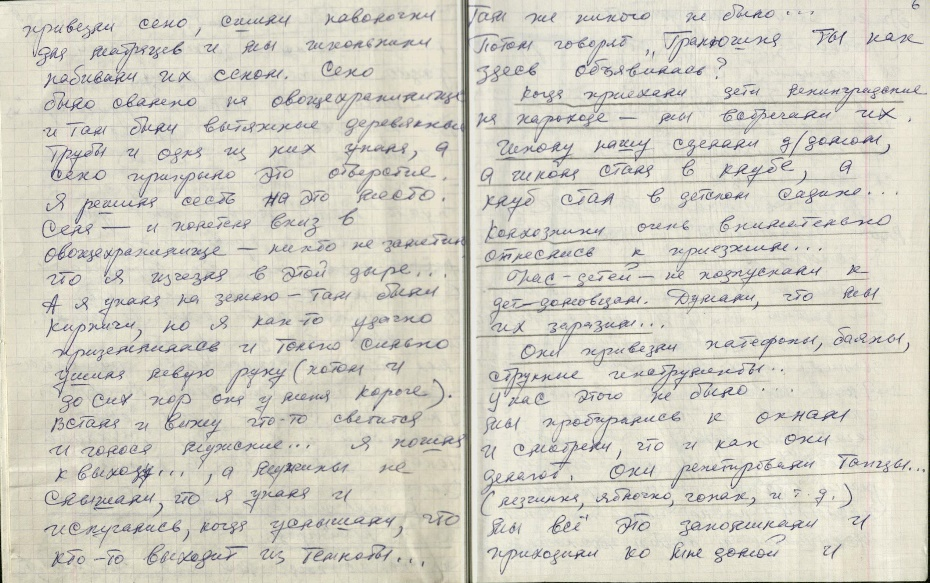 привезли сено, сшили наволочки
для матрацев и мы школьники
набивали их сеном. Сено
было свалено на овощехранилище
и там были вытяжные деревянные
трубы и одна из них упала, а
сено прикрыло это отверстие.
Я решила сесть на это место.
Села — и полетела вниз в
овощехранилище — никто не заметил
что я исчезла в этой дыре...
А я упала на землю — там были
кирпичи, но я как-то удачно
приземлилась и только сильно
ушибла левую руку (потом и
до сих пор она у меня короче).
Встала и вижу что-то светится
и голоса мужские... Я пошла
к выходу..., а мужчины не
слышали, что я упала и
испугались, когда услышали, что
кто-то выходит из темноты...
6
Там же никого не было...
Потом говорят, „ Ты как
здесь объявилась?
Когда приехали дети Ленинградские
на пароходе — мы встречали их.
Школу нашу сделали д/домом,
а школа стала в клубе, а
клуб стал в детском садике...
Колхозники очень внимательно
отнеслись к приезжим...
Нас - детей - не подпускали к
дет-домовцам. Думали, что мы
их заразим...
Они привезли патефоны, баяны,
струнные инструменты..
У нас этого не было...
Мы пробирались к окнам
и смотрели, что и как они
делают. Они репетировали танцы...
(лезгинка, яблочко, гопак, и т.д.)
Мы всё это запоминали и
приходили ко мне домой и